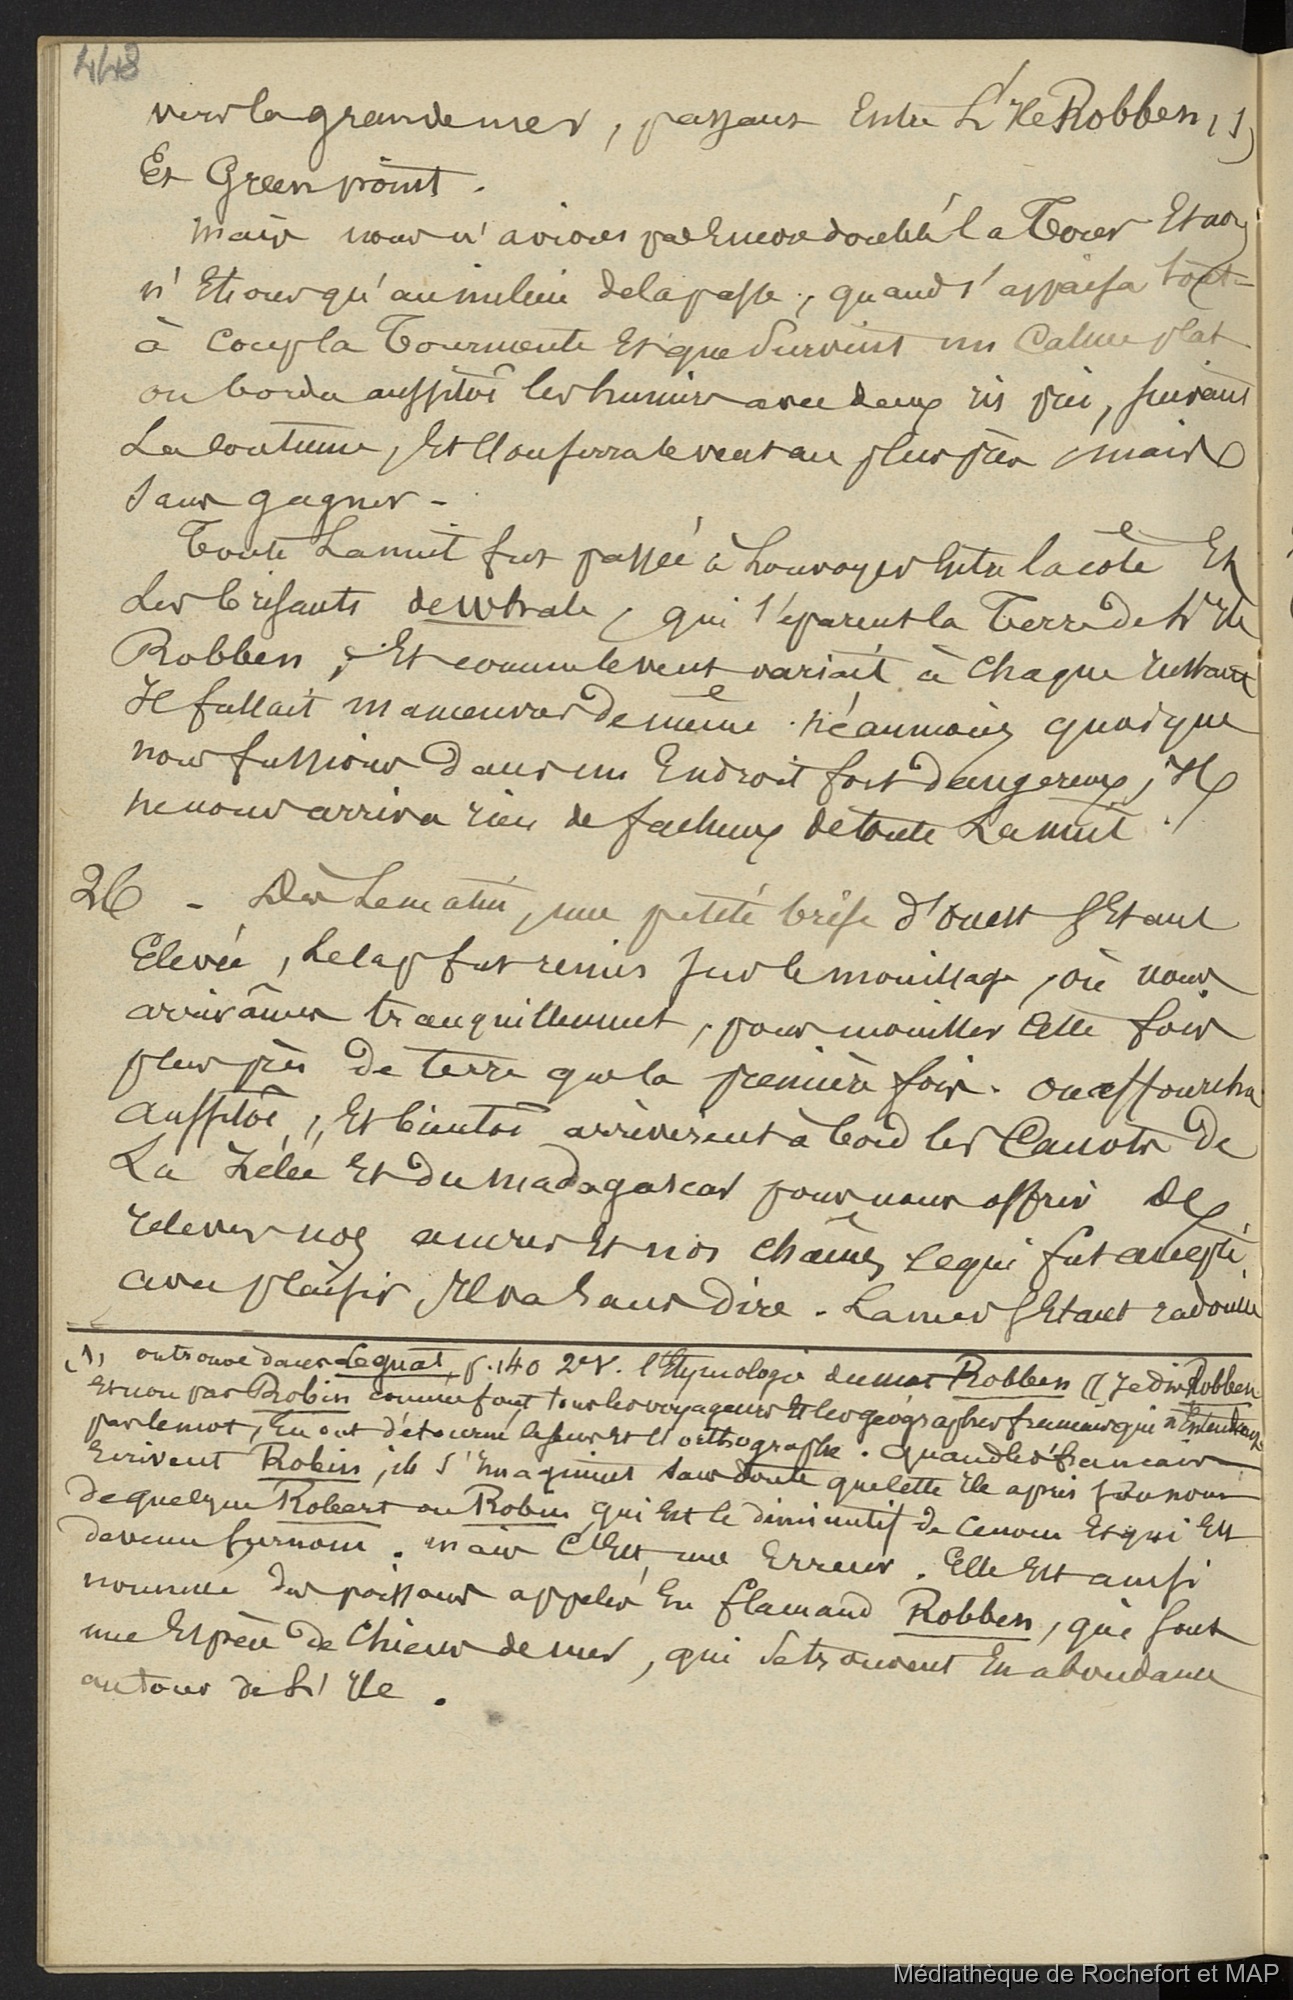 448
vers la grande mer, passant Entre L'Ile Robben, (1)
Et Green point.
Mais nous n'avions pas Encore doublé la Tour Et nous
n'Etions qu'au milieu de la passe, quand s'appaisa tout-
à coup la Tourmente Et que Survint un Calme plat
on borda aussitôt les huniers avec deux ris pris, suivant
La coutume, Et l'on serra le vent au plus près, mais
sans gagner -
Toute La nuit fut passée à Louvoyer Entre la côte Et
Les brisants de whale, qui séparent la Terre de L'Ile
Robben, Et comme le vent variait à chaque Instant
Il fallait manoeuvrer De même. Néanmoins quoique
nous fussions dans un Endroit fort dangereux, Il
ne nous arriva rien de facheux de toute La nuit.
26 - Dès Le matin, une petite brise d'ouest s'Etant
Elevée, Le Cap fut remis sur le mouillage, où nous
arrivâmes tranquillement, pour mouiller Cette fois
plus près De terre que la première fois. On affourcha
aussitôt, Et bientôt arrivèrent à bord les Canots De
La Zélée Et du Madagascar pour nous offrir de
relever nos ancres Et nos chaînes, ce qui fut accepté
avec plaisir, Il va Sans Dire. La mer s'Etant radoucie
(1) on trouve dans Leguat, p. 140 2e V. l'Etymologie du mot Robben (( Je dis Robben
Et non pas Robin comme font tous les voyageurs Et les géographes français qui n'Entendant
pas le mot, En ont détourné le sens Et l'orthographe. Quand les français
Ecrivent Robin, ils s'Imaginent sans doute que cette Ile a pris son nom
De quelque Robert ou Robin qui Est le diminutif de ce nom Et qui Est
devenu surnom. Mais C'Est une Erreur. Elle Est ainsi
nommée des poissons appelés En flamand Robben, qui sont
une Espèce De Chiens de mer, qui Se trouvent En abondance
autour de L'Ile.
Médiathèque de Rochefort et MAP